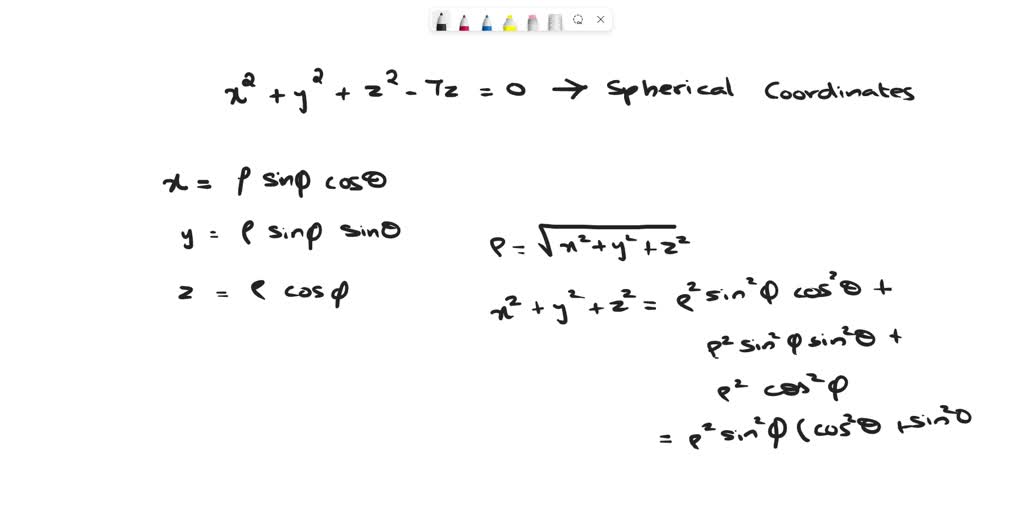 x² + y² + z² - 7z = 0 → Spherical Coordinates
x = ρ sinφ cosθ
y = ρ sinφ sinθ
z = ρ cosφ
ρ = √x² + y² + z²
x² + y² + z² = ρ² sin²φ cos²θ +
ρ² sin²φ sin²θ +
ρ² cos²φ
= ρ² sin²φ (cos²θ + sin²θ